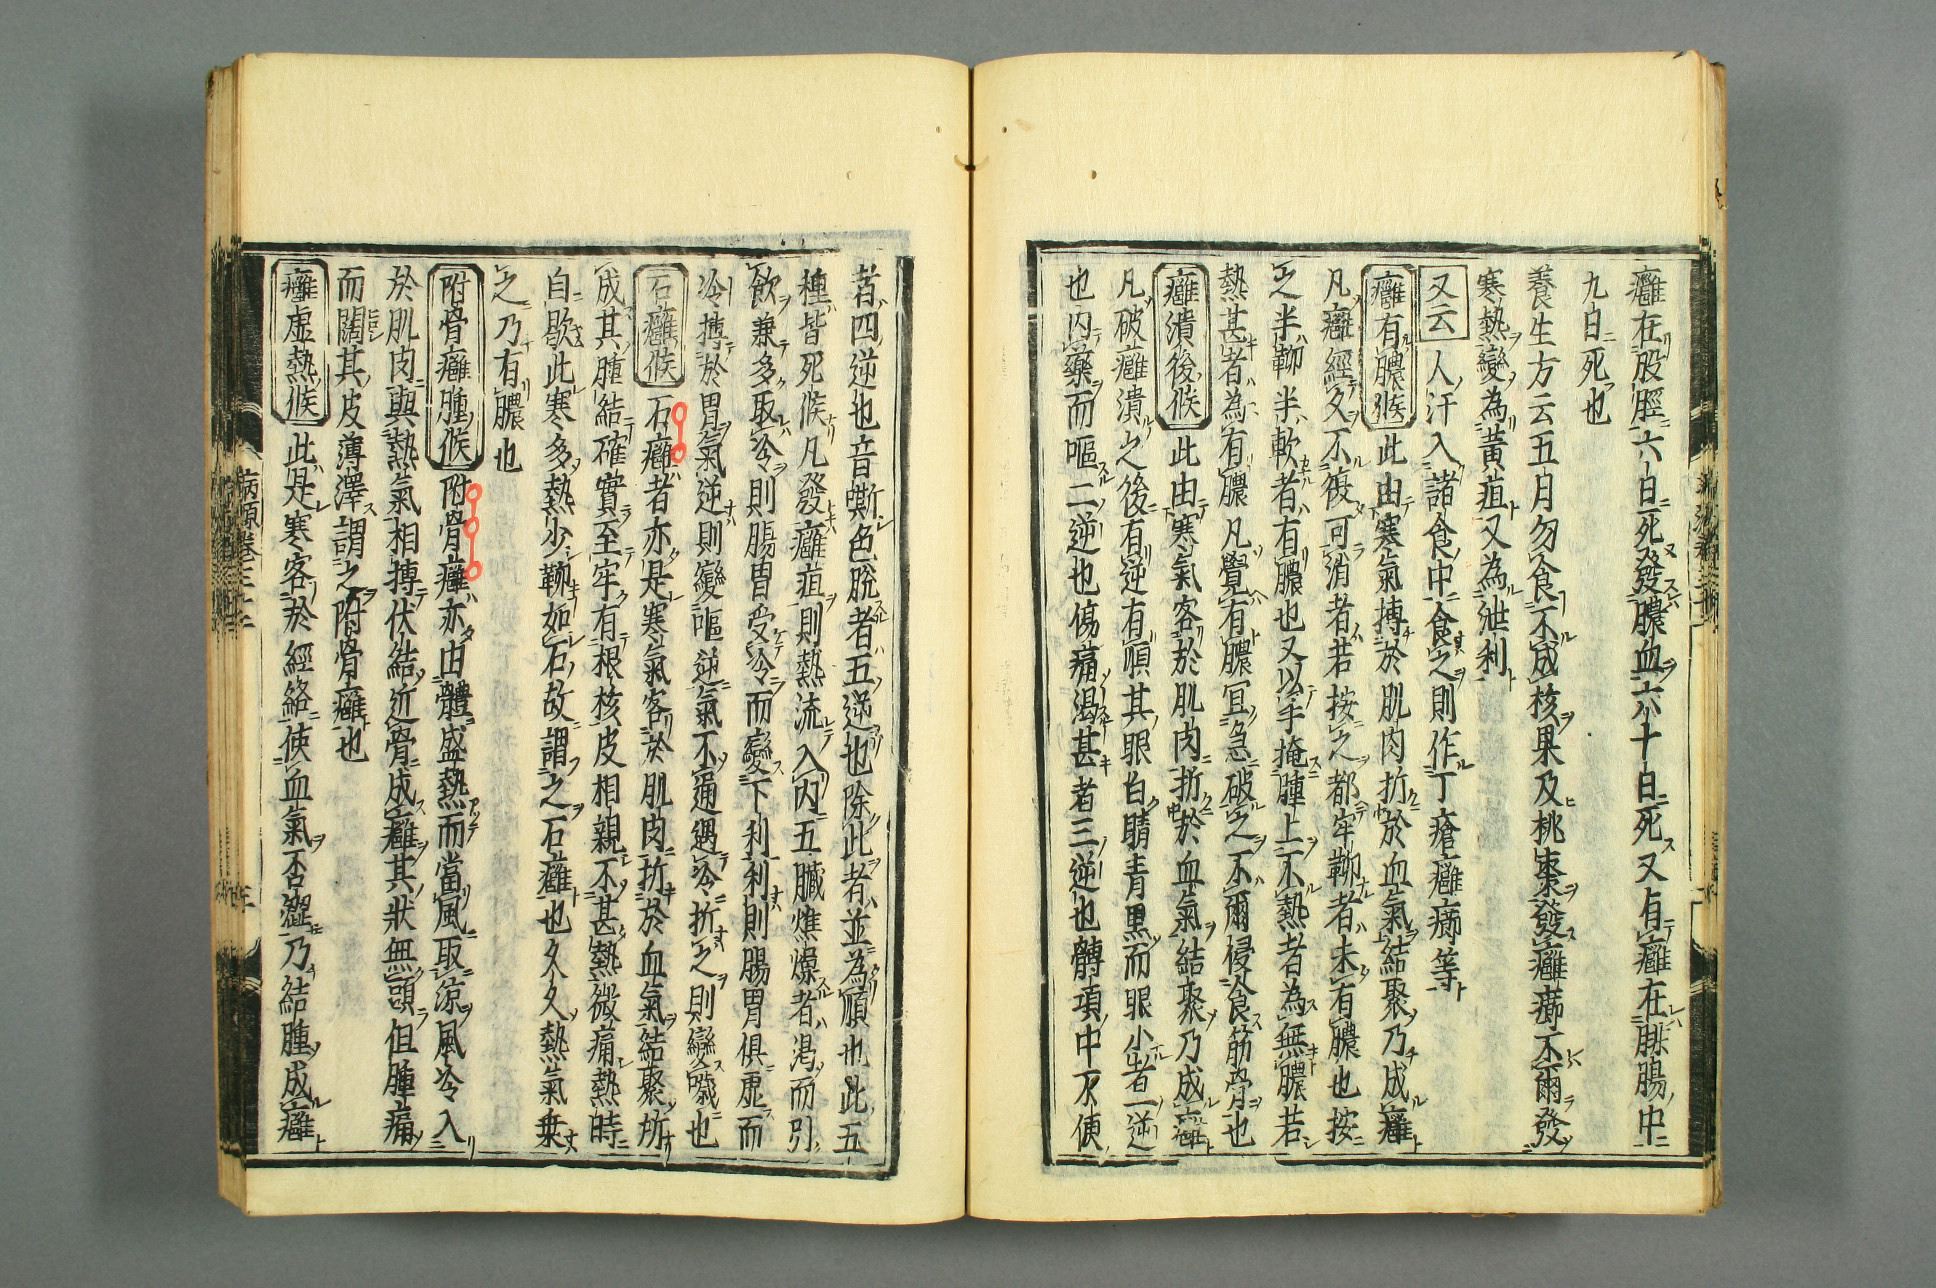 癰在股脛六日死發膿血六十日死又有癰在腨腸中
九日死也
養生方云五月勿食不成核果及桃棗發癰癤不爾發
寒熱變為黃疸又為泄利
又云人汗入諸食中食之則作丁瘡癰癤等
癰有膿候此由寒氣搏於肌肉折於血氣結聚乃成癰
凡癰經久不復可消者若按之都牢鞕者未有膿也按
之半鞕半軟者有膿也又以手掩腫上不熱者為無膿若
熱甚者為有膿凡覺有膿宜急破之不爾侵食筋骨也
癰潰後候此由寒氣客於肌肉折於血氣結聚乃成癰
凡破癰潰之後有逆有順其眼白睛青黑而眼小者一逆
也内藥而嘔二逆也傷痛渴甚者三逆也髆項中不便
者四逆也音嘶色脫者五逆也除此者並為順也此五
種皆死候凡發癰疽則熱流入内五臟燋燥者渴而引
飲兼多取冷則腸胃受冷而變下利利則腸胃俱虛而
冷搏於胃氣逆則變嘔逆氣不通遇冷折之則變噦也
石癰候石癰者亦是寒氣客於肌肉折於血氣結聚所
成其腫結確實至牢有根核皮相親不甚熱微痛熱時
自歇此寒多熱少鞕如石故謂之石癰也久久熱氣乗
之乃有膿也
附骨癰腫候附骨癰亦由體盛熱而當風取涼風冷入
於肌肉與熱氣相搏伏結近骨成癰其狀無頭但腫痛
而闊其皮薄澤謂之附骨癰也
癰虛熱候此是寒客於經絡使血氣否澀乃結腫成癰
病源卷三十二